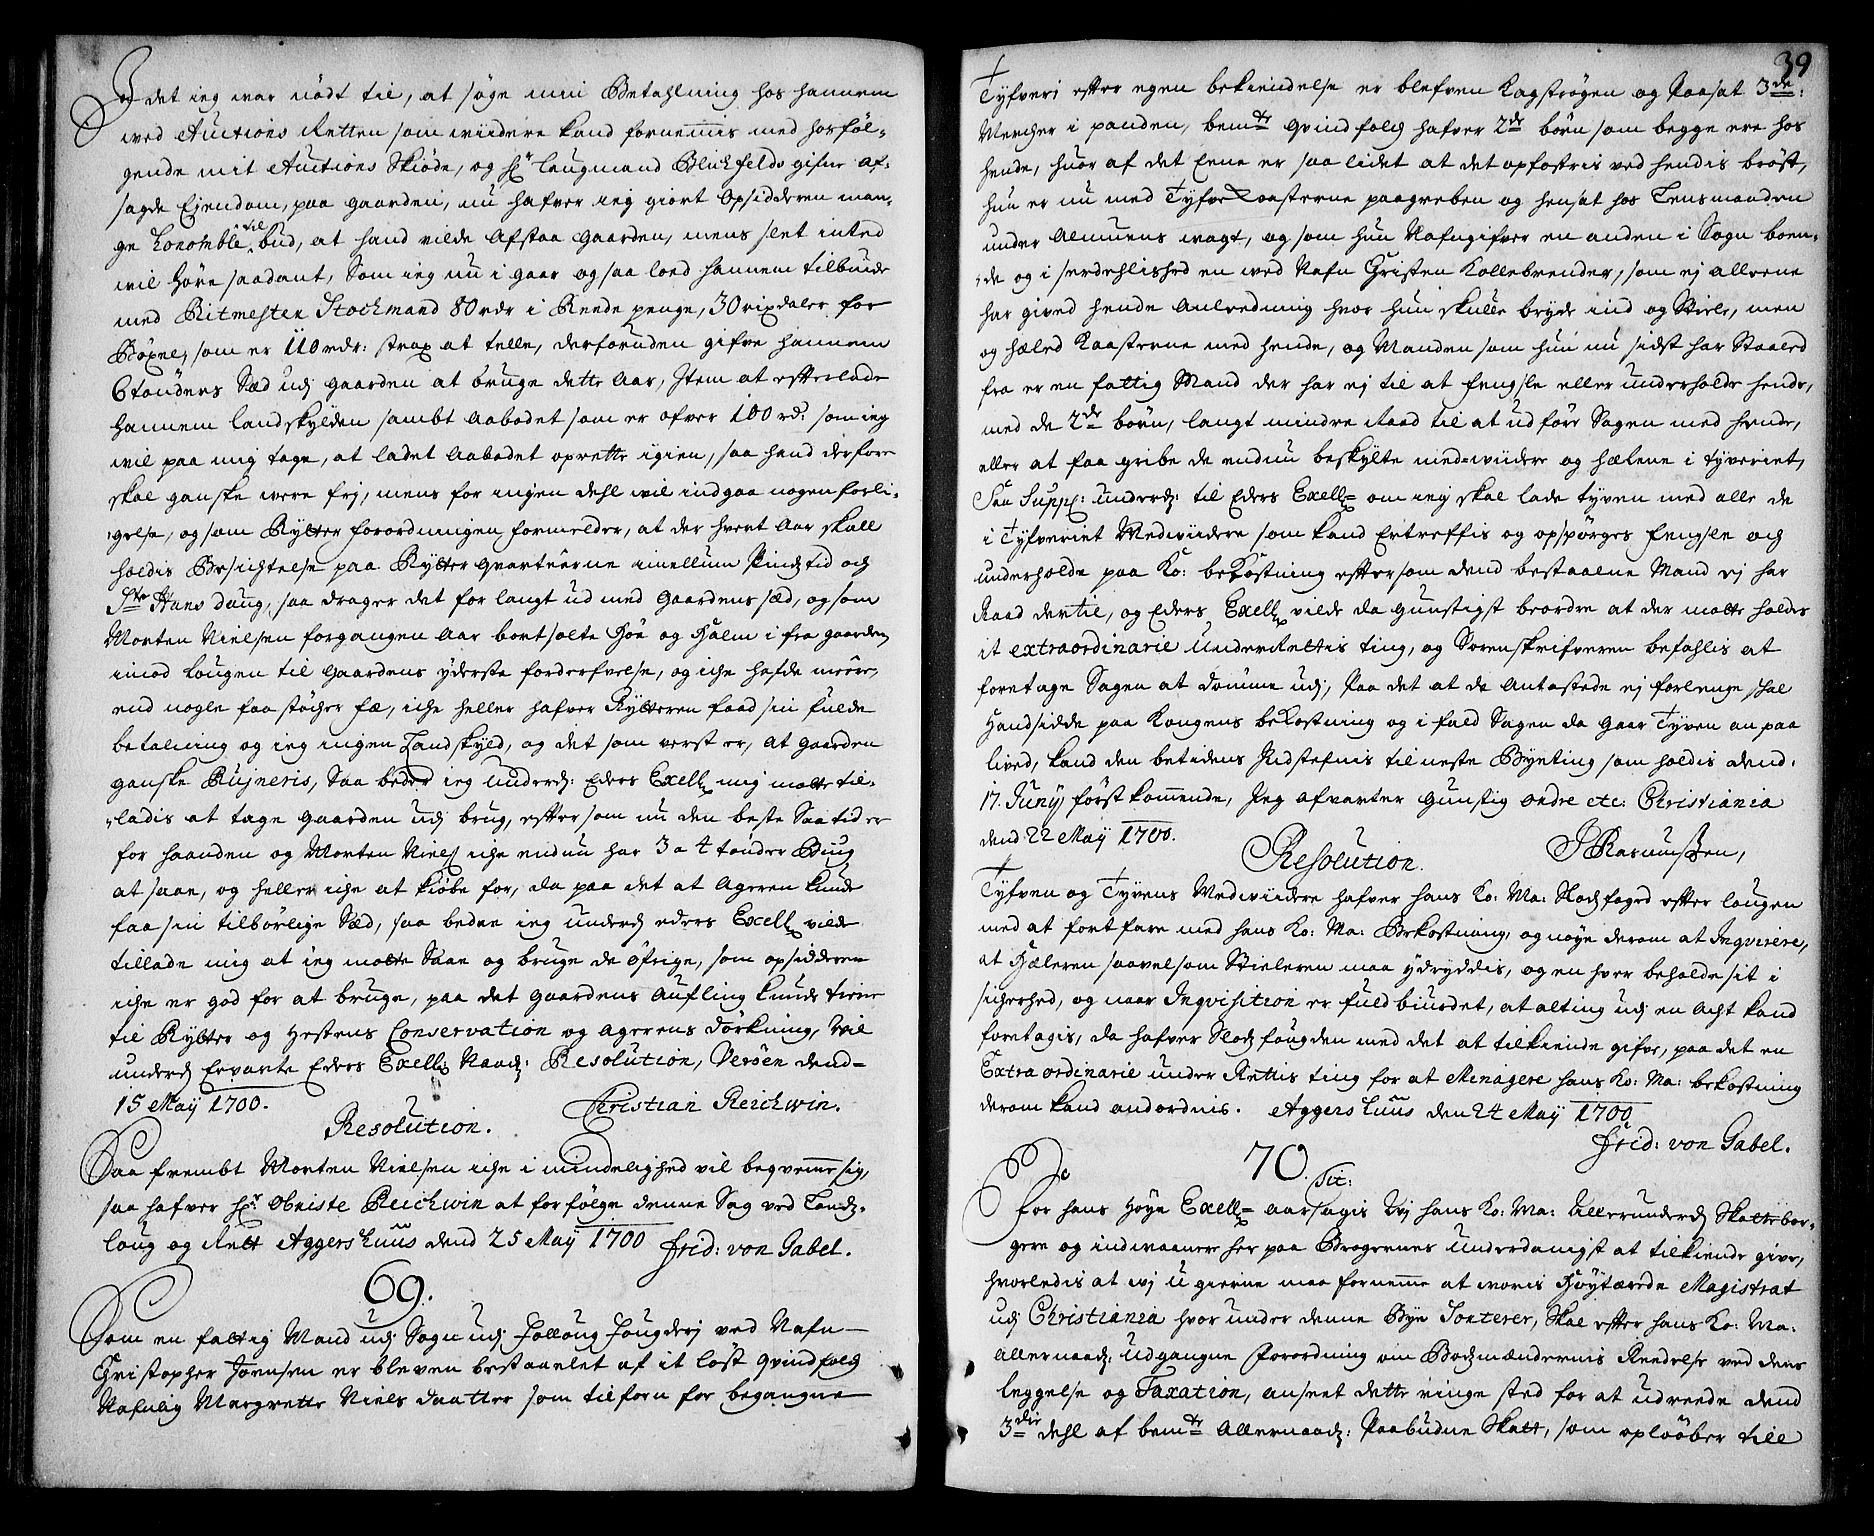 og det ieg war nödt til, at söge min Betahlning hos hannem
wed Auctions Retten som wiidere kand fornemis med hosföl-
gende mit Auctions Skiöde, og Hr Laugmand Blichfelds gifne af-
sagde Eiendom, paa gaarden, nu hafver ieg giort opsidderen man-
ge Conomble til bud, at hand vilde Afstaa Gaarden, mens slet inted
wil Höre saadant, Som ieg nu i gaar og saa loed hannem tilbinde
med Ritmester Stochmand 80 rdr i Reede penge, 30 rixdaler for
Böxel, som er 110 rdr: strax at telle, derforuden gifve hannem
6 tönders Sæd udj gaarden at bruge dette Aar, Item at efterlade
hannem landskylden sambt Aabodet som er ofver 100 rd: som ieg
wil paa mig tage, at ladet Aabodet oprette igien, saa hand derfore
skal ganske were frj, mens for ingen dehl wil indgaa nogen forli-
gelse, og som Rytter forordningen formelder, at der hvert Aar skall
holdis Besichtelse paa Rytter qvarteerne imellum Pindstid och
Ste Hans daug, saa drager det for langt ud med Gaardens sæd, og som
Morten Nielsen forgangen Aar bortsolte Höe og Halm i fra gaarden
imod lougen til Gaardens yderste forderfvelse, og iche hafde meere,
end nogle faa stöcher fæ, iche heller hafver Rytteren faad sin fulde
betalning og ieg ingen Landskyld, og det som verst er, at gaarden
ganske Rujneris, Saa beder ieg Underd: Eders Exell mig motte til-
ladis at tage Gaarden udj brug, eftersom nu den beste Saatid er
for haanden og Morten Niels iche endnu har 3 a 4 tönder Biug
at saae, og heller iche at kiöbe for, da paa det at Ageren kunde
faa sin tilbörlige Sæd, saa beder ieg underd eders Exell vilde
tillade mig at ieg motte Saae og bruge de öfrige, som opsidderen
iche er god for at bruge, paa det Gaardens Aufling kunde tiene
til Rytter og Hestens Conservation og Agerens dörkning, Wil
underd Ervarte Eders Exell: Naad: Resolution, Veröen dend-
15 May 1700. Christian Reichwin.
Resolution.
Saa frembt Morten Nielsen iche i mindelighed vil beqvemme sig,
saa hafver Hr: Obriste Reichwin at forfölge denne Sag ved Lands-
loug og Rett Aggershuus dend 25 May 1700 Frid: von Gabel.
69.
Som en fattig Mand udj Sogn udj Folloug Fougderj ved Nafn
Christopher Jörensen er bleven bestaalet af it löst Qvindfolch
Nafnlig Margrette Niels daatter som tilforn for begangne
39
Tyfveri efter egen bekiendelse er blefven Kagströgen og Paasat 3de:
Mercher i panden, bemte Qvindfolch hafver 2de börn som begge ere hos
hende, huor af det Eene er saa lidet at det opfostris ved hendis bröst,
hun er nu med Tyfve Kaasterne paagreben og hensat hos Lensmanden
under Almuens wagt, og som hun Nafngifver en anden i Sogn boen-
de og i serdehlished en wed Nafn Christen Kollebrender, som ej alleene
har gived hende Anledning hvor hun skulle bryde ind og Stiele, men
og hæled Kaasterne med hende, og Manden som hun nu sidst har Staaled
fra er en fattig Mand der har ej til at fengsle eller underholde hende,
med de 2de börn, langt mindre Raad til at udföre Sagen med hende,
eller at faa gribe de endnu beskylte med-wiidere og hælene i tyveriet,
Saa Suppl: Underd: til Eders Exell om ieg skal lade tyven med alle de
i Tyfveriet Medwiidere som kand Ertreffis og opspörges fengsle och
underholde paa Ko: beKostning eftersom dend bestaalne Mand ej har
Raad dertil, og Eders Exell vilde da gunstigst beordre at der motte holdes
it extraordinarie Underrettis ting, og Sorenskrifveren befahlis at
foretage Sagen at dömme udj, Paa det at de Antastede ej forlenge skal
Handsidde paa Kongens beKostning og i fald Sagen da gaar Tyven an paa
lived, kand den betidens Indstefnis til neste Bynting som holdis dend.
17. Juny först kommende, Jeg afvarter Gunstig ordre etc: Christiania
dend 22 May 1700. J Rasmussen,
Resolution.
Tyfven og Tyvens Medwiidere hafver hans Ko: Ma: Slodsfoged efter lougen
med at fortfare med hans Ko: Ma: Bekostning, og nöye derom at Inqvirere,
at Hæleren saavelsom Stieleren maa ydryddis, og en hver beholde sit i
sicherhed, og naar Inqvisition er fuldbiurdet, at alting udj en Acht kand
foretagis, da hafver Slodsfougden med det at tilkiende gifve, paa det en
Extra ordinarie under Rettis ting for at Menagere hans Ko: Ma: bekostning
derom kand andordnis. Aggershuus den 24 May 1700
Frid: von Gabel.
70.
Tit:
For hans Höye Exell aarsagis Wj hans Ko: Ma: Allerunderd Skattebor-
gere og indwaanere her paa Bragernes Underdanigst at tilkiende give,
hvorledis at wj ugierne maa fornemme at woris Höytærede Magistrat
udj Christiania hvor under denne Bye Sorterer, Skal efter hans Ko: Ma:
Allernaad: Udgangne Forordning om Bodsmændernis Reedelse ved dens
leggelse og Taxation, anseet dette ringe sted for at udreede dend
3die dehl af bemte Allernaad: Paabudne Skatt, som oplööber till